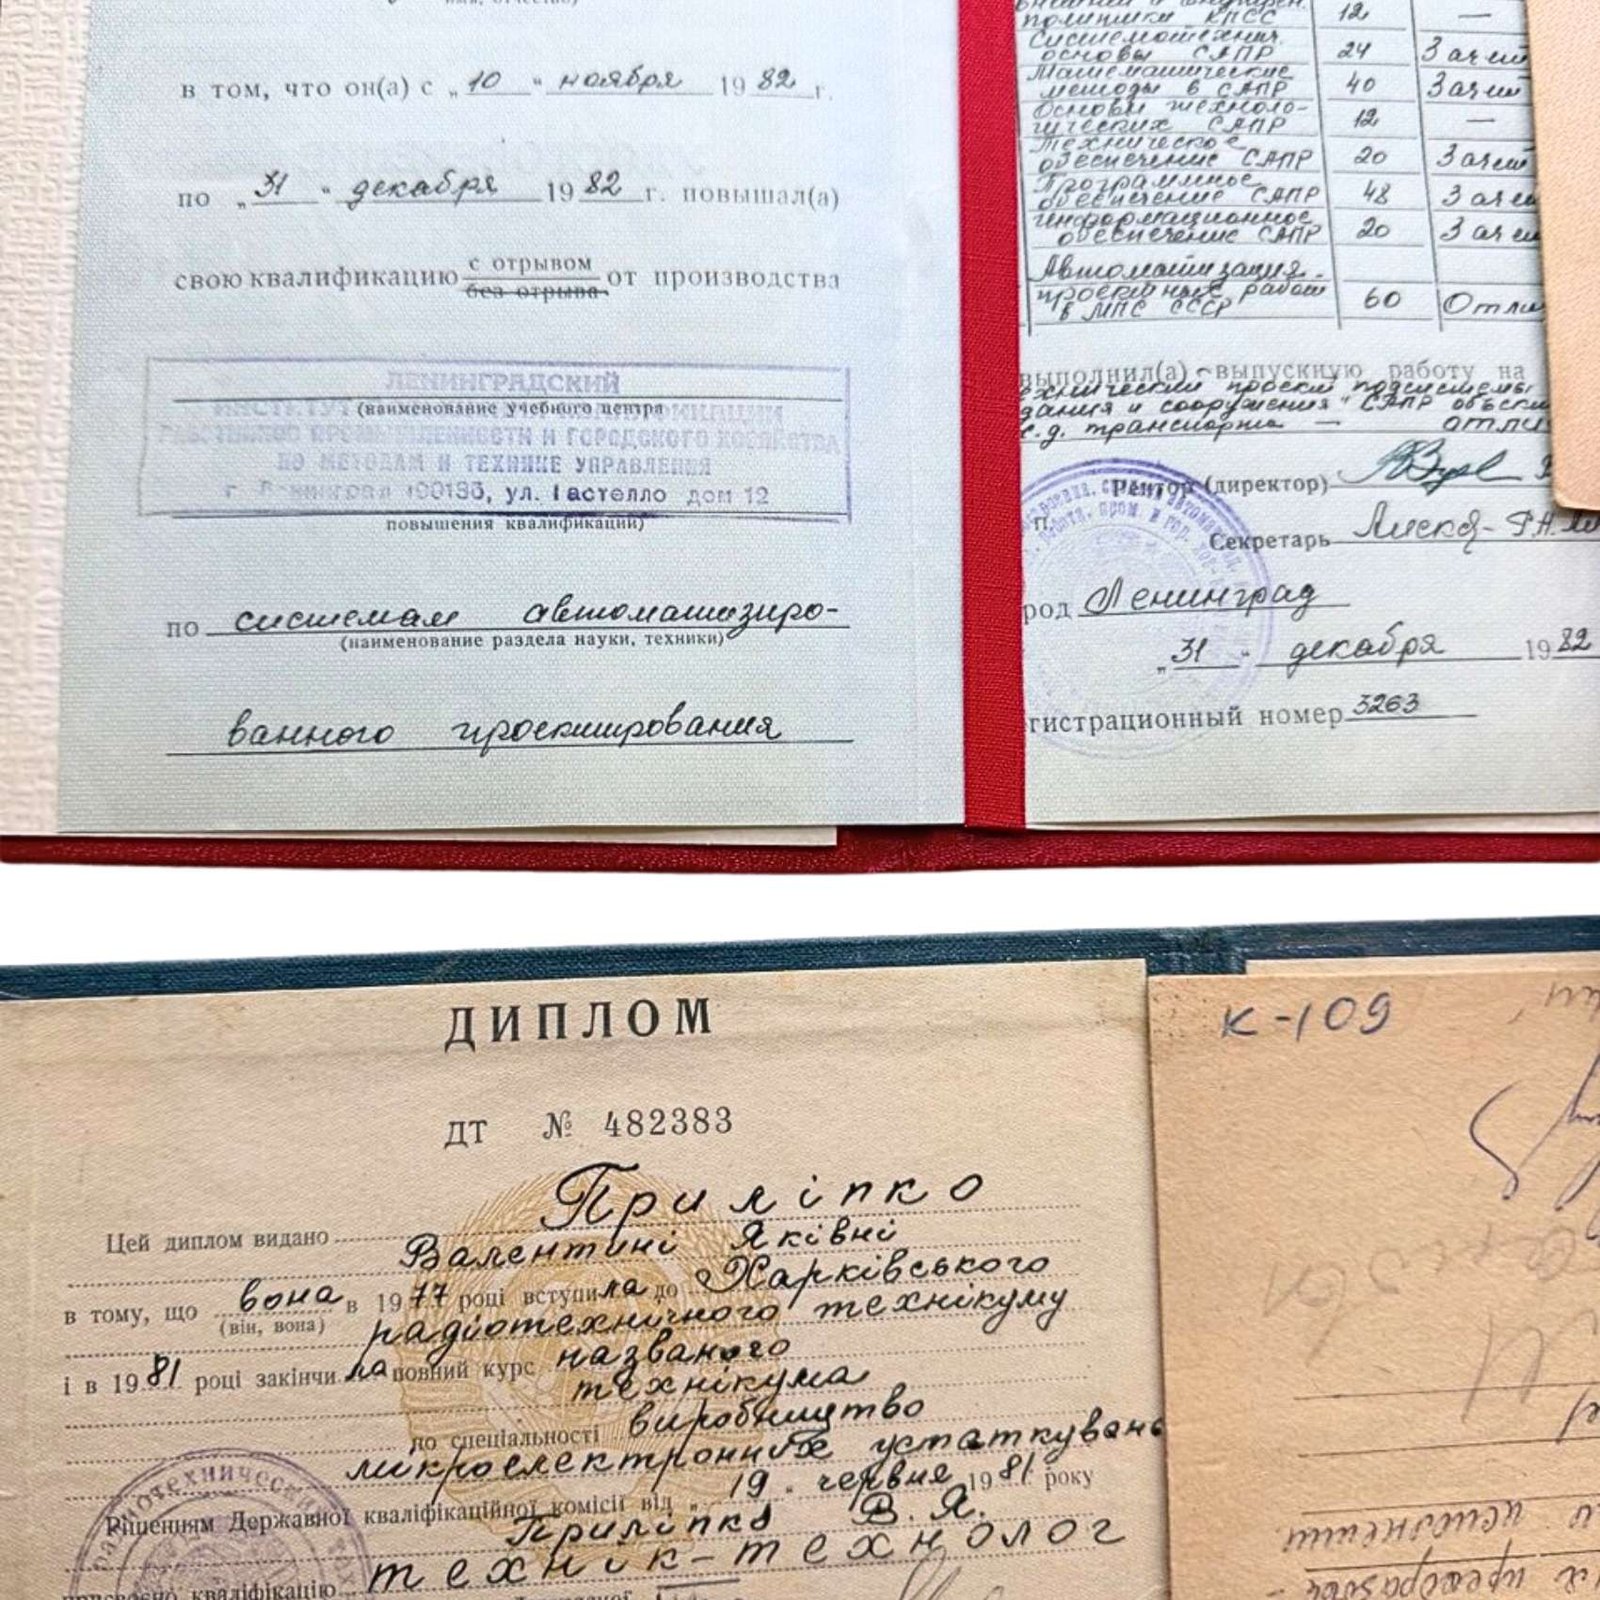 в том, что он(а) с „10" ноября 1982 г.
по „31" декабря 1982 г. повышал(а)
свою квалификацию с отрывом от производства
без отрыва
ЛЕНИНГРАДСКИЙ
ИНСТИТУТ
(наименование учебного центра
РАБОТНИКОВ ПРОМЫШЛЕННОСТИ И ГОРОДСКОГО ХОЗЯЙСТВА
ПО МЕТОДАМ И ТЕХНИКЕ УПРАВЛЕНИЯ
ул. Гастелло дом 12
повышения квалификации)
по системам автоматизиро-
(наименование раздела науки, техники)
ванного проектирования
политики КПСС 12 —
Системотехнич.
основы САПР 24 Зачет
Математические
методы в САПР 40 Зачет
Основы техноло-
гических САПР 12 —
Техническое
обеспечение САПР 20 Зачет
Программное
обеспечение САПР 48 Зачет
Информационное
обеспечение САПР 20 Зачет
Автоматизация
проектных работ
в МПС СССР 60 Отли
выполнил(а) выпускную работу на
технический проект подсистемы
здания и сооружения" САПР объект
ж.д. транспорта — отли
Ректор (директор)
М.П.
Секретарь
город Ленинград
„31" декабря 1982
регистрационный номер 3263
ДИПЛОМ
ДТ № 482383
Цей диплом видано Приліпко
Валентині Яківні
в тому, що вона в 1977 році вступила до Харківського
(він, вона) радіотехнічного технікуму
і в 1981 році закінчила повний курс названого
технікума
по спеціальності виробництво
мікроелектронних устаткувань
Рішенням Державної кваліфікаційної комісії від „19" червня 1981 року
Приліпко В. Я.
присвоєно кваліфікацію технік-технолог
К-109